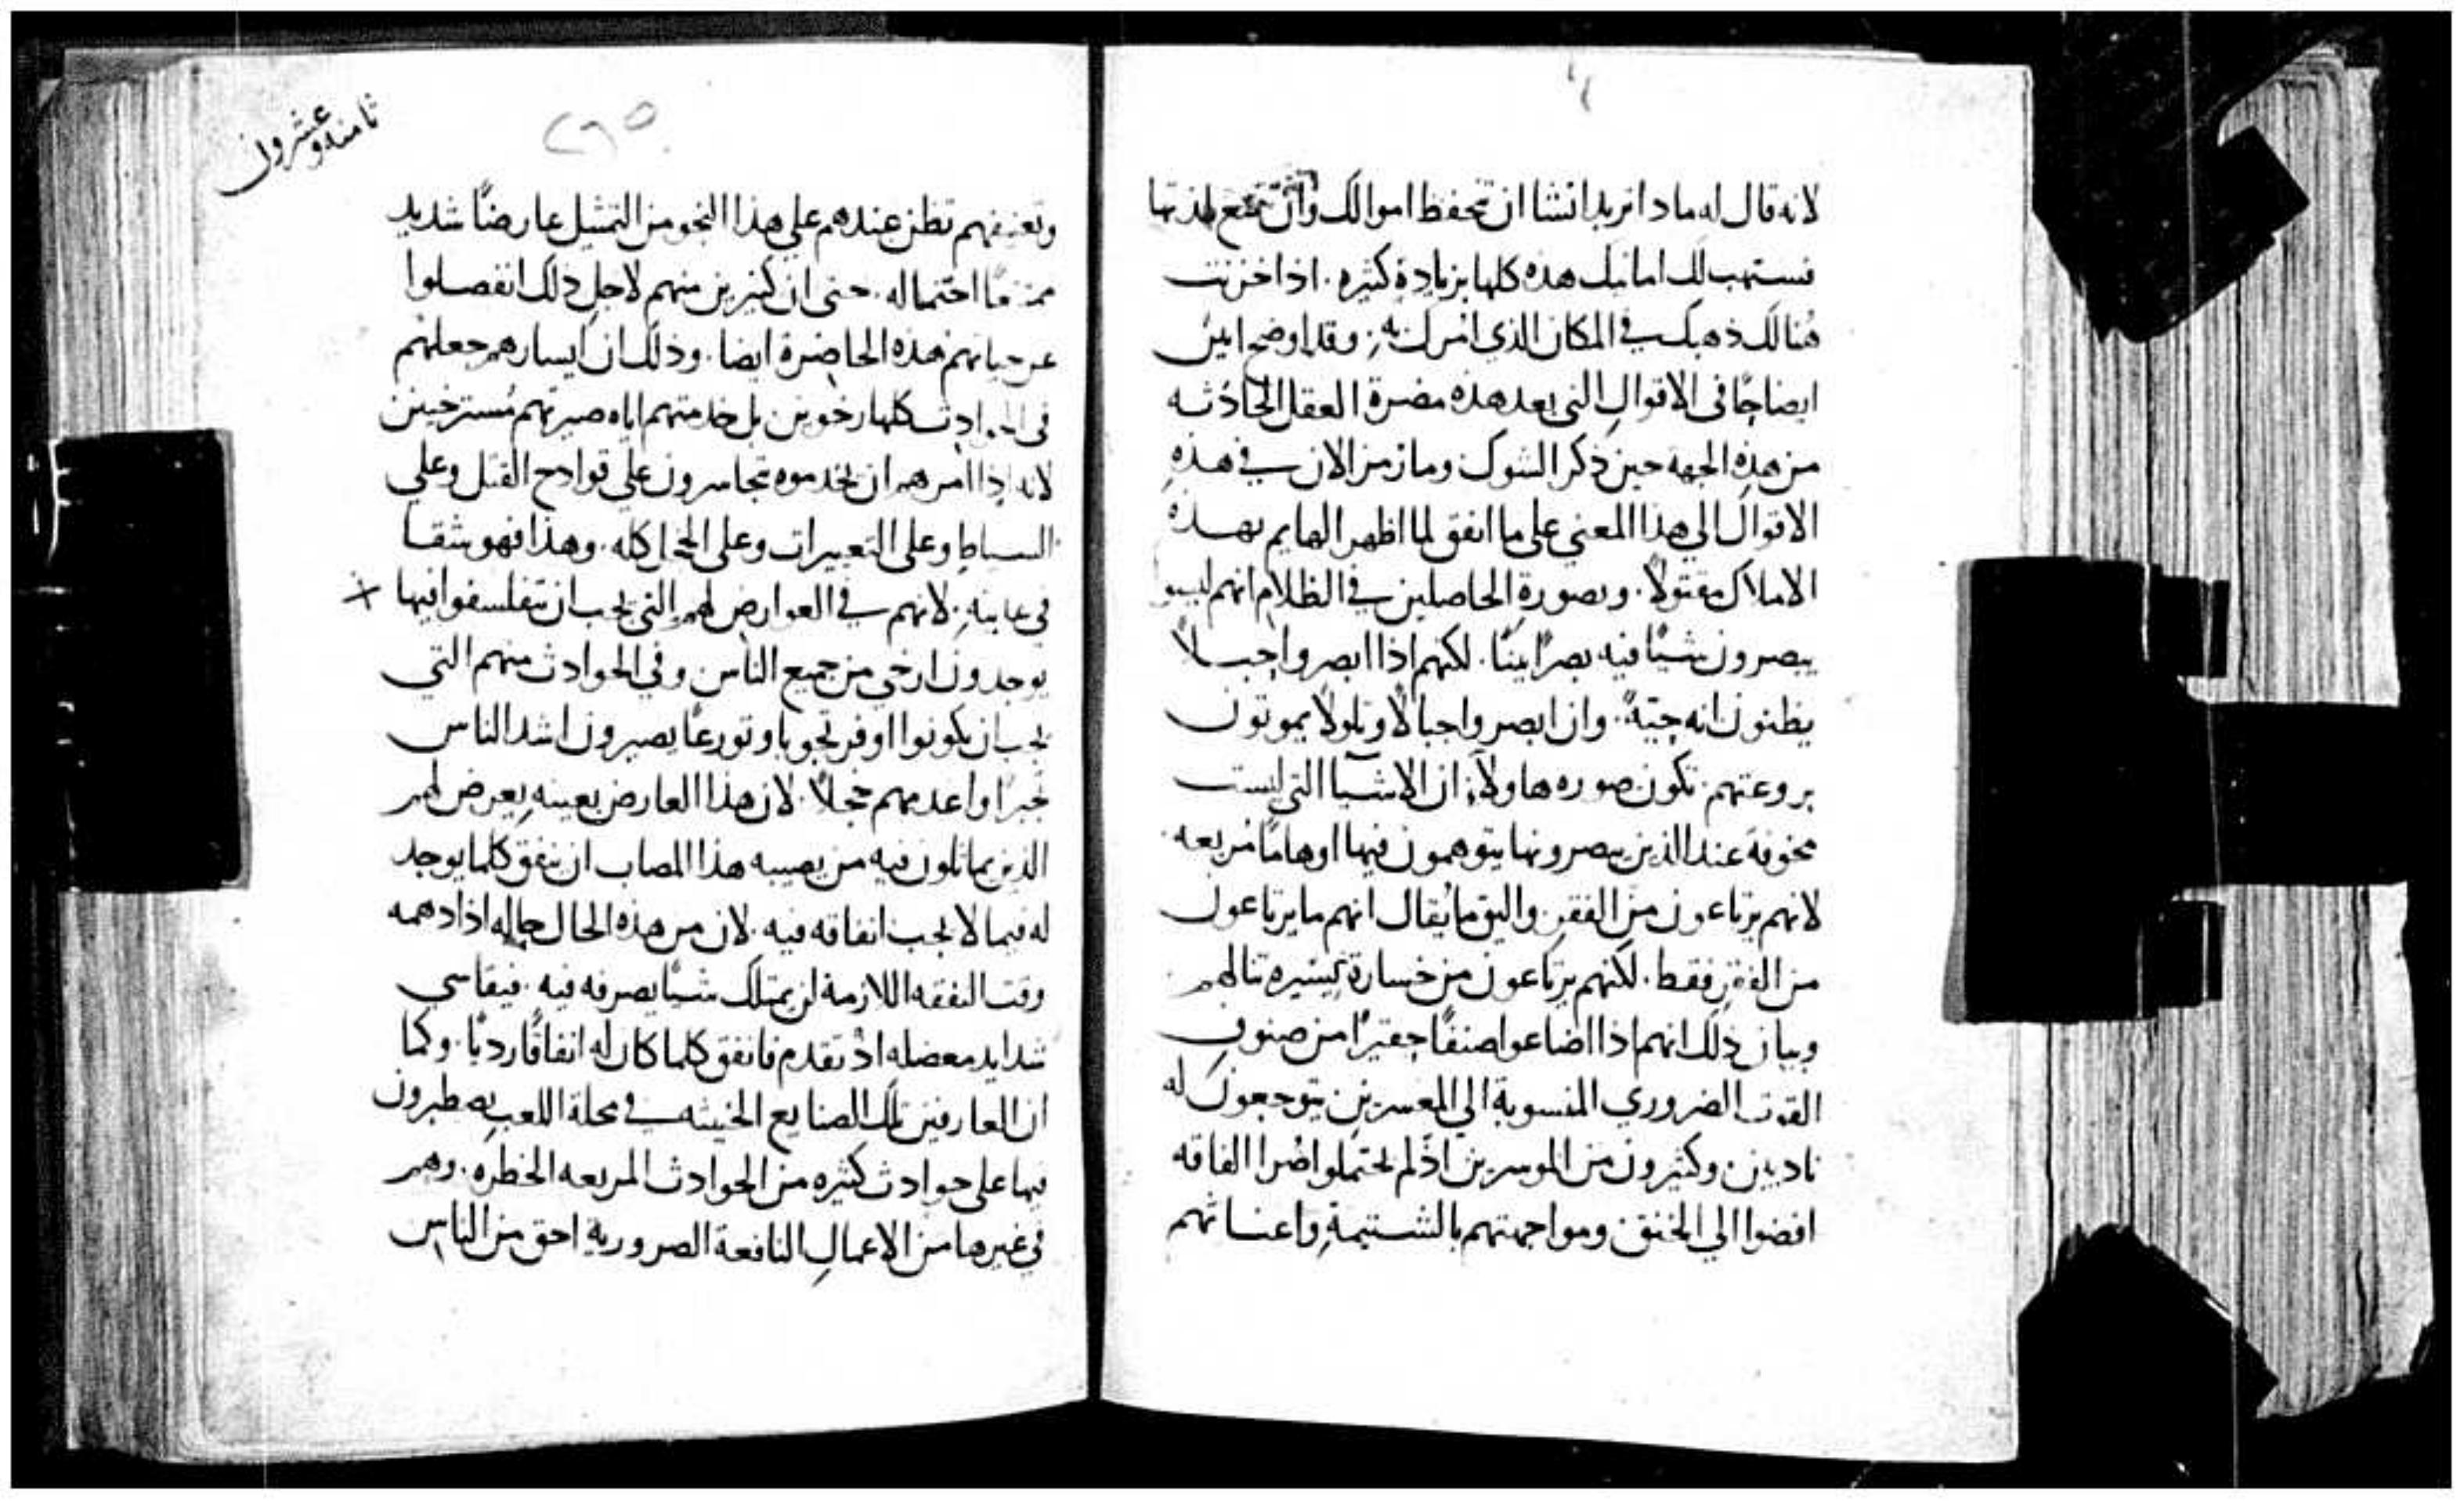 لانه قال له ماذا تريد اتشا ان تحفظ اموالك وان تتمتع بلذتها
فستهب لك امانيك هذه كلها بزيادة كثيره. اذا خزنت
هنالك ذهبك في المكان الذي امرك به. وقد اوضح ابين
ايضاحًا في الاقوال التي بعد هذه مضرة العقل الحادثه
من هذه الجهه حين ذكر الشوك وما زمن الان في هذه
الاقوال الي هذا المعني علي ما اتفق لما اظهر الهايم بهذه
الاملاك مقتولًا. وبصورة الحاصلين في الظلام انهم ليسوا
يبصرون شيًا فيه بصرًا بينًا. لكنهم اذا ابصروا حبلًا
يظنون انه حيّةً. وان ابصروا جبالًا وتلولًا يموتون
بروعتهم. تكون صوره هاولآء ان الاشيا التي ليست
مخوفة عند الذين يبصرونها يتوهمون فيها اوهامًا مُريعه
لانهم يرتاعون من الفقر. واليق ما يُقال انهم ما يرتاعون
من الفقر فقط. لكنهم يرتاعون من خسارة يسيره تنالهم
وبيان ذلك انهم اذا اضاعوا صنفًا حقيرًا من صنوف
القوت الضروري المنسوبة الي المعسرين يتوجعون له
نادبين. وكثيرون من الموسرين اذ لم يحتملوا ضرا الفاقه
افضوا الي الخنق. ومواجهتهم بالشتيمة واعناتهم
ثامنه وعشرون
٢٦٥
وتعنيفهم تظن عندهم علي هذا النحو من التمثيل عارضًا شديد
احتماله. حتى ان كثيرين منهم لاجل ذلك انفصلوا
عن حياتهم هذه الحاضرة ايضا. وذلك ان ايسارهم جعلهم
في الحوادث كلها رخوين بل خدمتهم اياه صيرتهم مُسترخين
لانه اذا امرهم ان يخدموه يتجاسرون على قوادح القتل وعلي
السياط وعلى التعييرات وعلى الخجل كله. وهذا فهو شقا
في غايته. لانهم في العوارض لهم التي يجب ان يتفلسفوا فيها
يوجدون ارخي من جميع الناس وفي الحوادث منهم التي
يجب ان يكونوا اوفر تحوبا وتورعًا يصيرون اشد الناس
تجبرًا واعدمهم خجلًا. لان هذا العارض بعينه يعرض لهم
الذين يماثلون فيه من يصيبه هذا المصاب ان ينفق كلما يوجد
له فيما لا يجب انفاقه فيه. لان من هذه الحال حاله اذا دهمه
وقت النفقه اللازمة لن يمتلك شيًا يصرفه فيه. فيقاسي
شدايد معضله اذ تقدم فانفق كلما كان له انفاقًا رديًا. وكما
ان العارفين تلك الصنايع الخبيثه في محلة اللعب يصطبرون
فيها على حوادث كثيره من الحوادث المريعه الخطره. وهم
في غيرها من الاعمال النافعة الضرورية احق من الناس